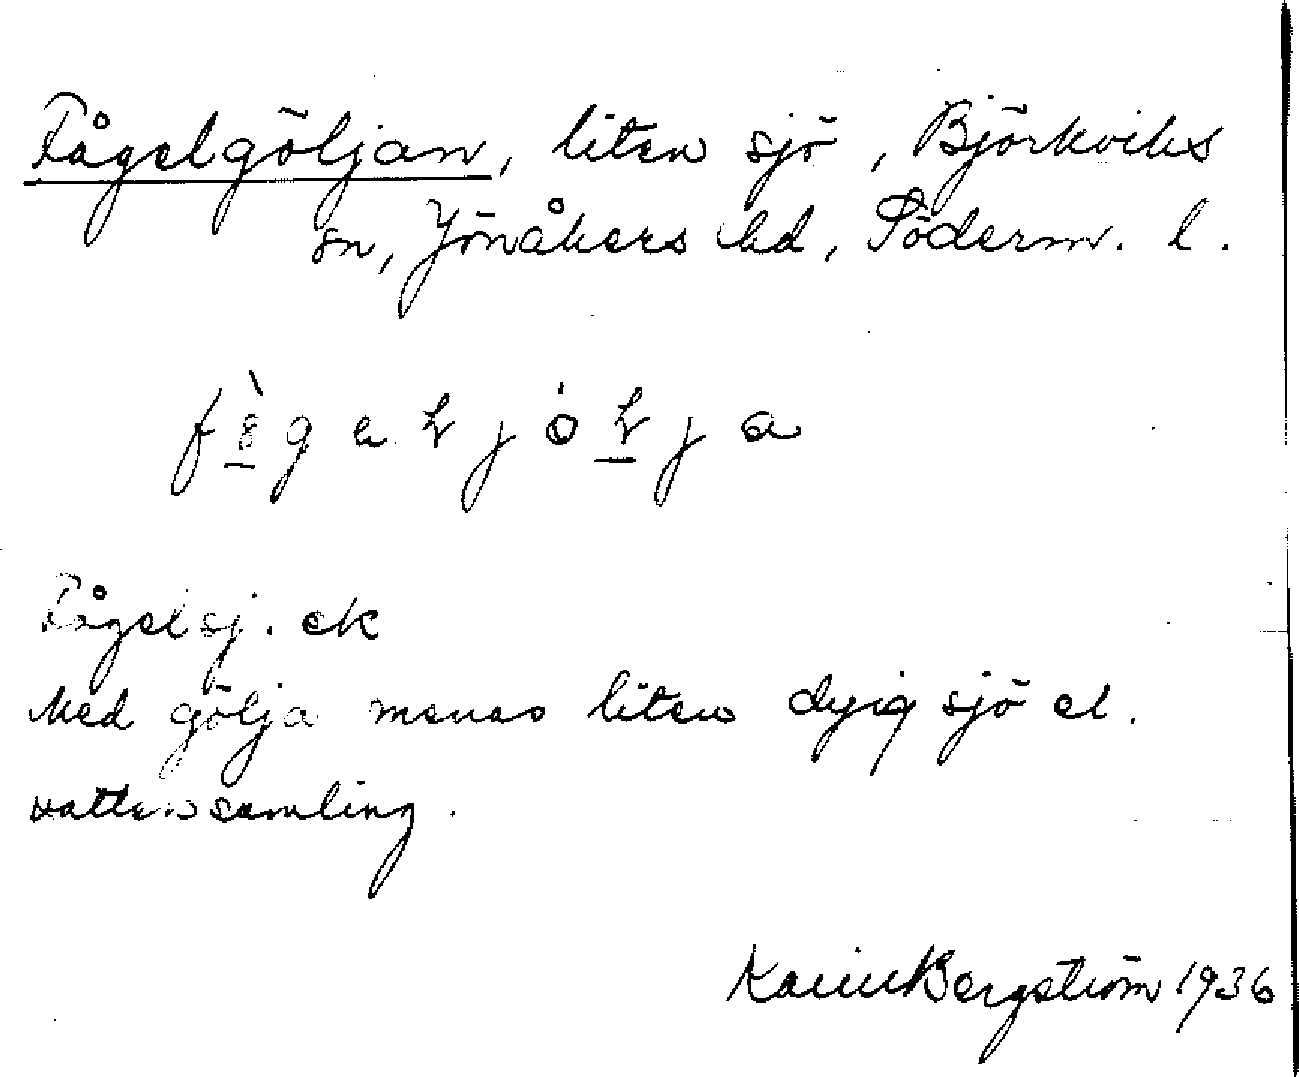 Fågelgöljan, liten sjö, Björkviks
sn, Jönåkers hd, Söderm. l.
Fågelsj. ek
Med gölja menas liten dyig sjö el.
vattensamling.
Karin Bergström 1936